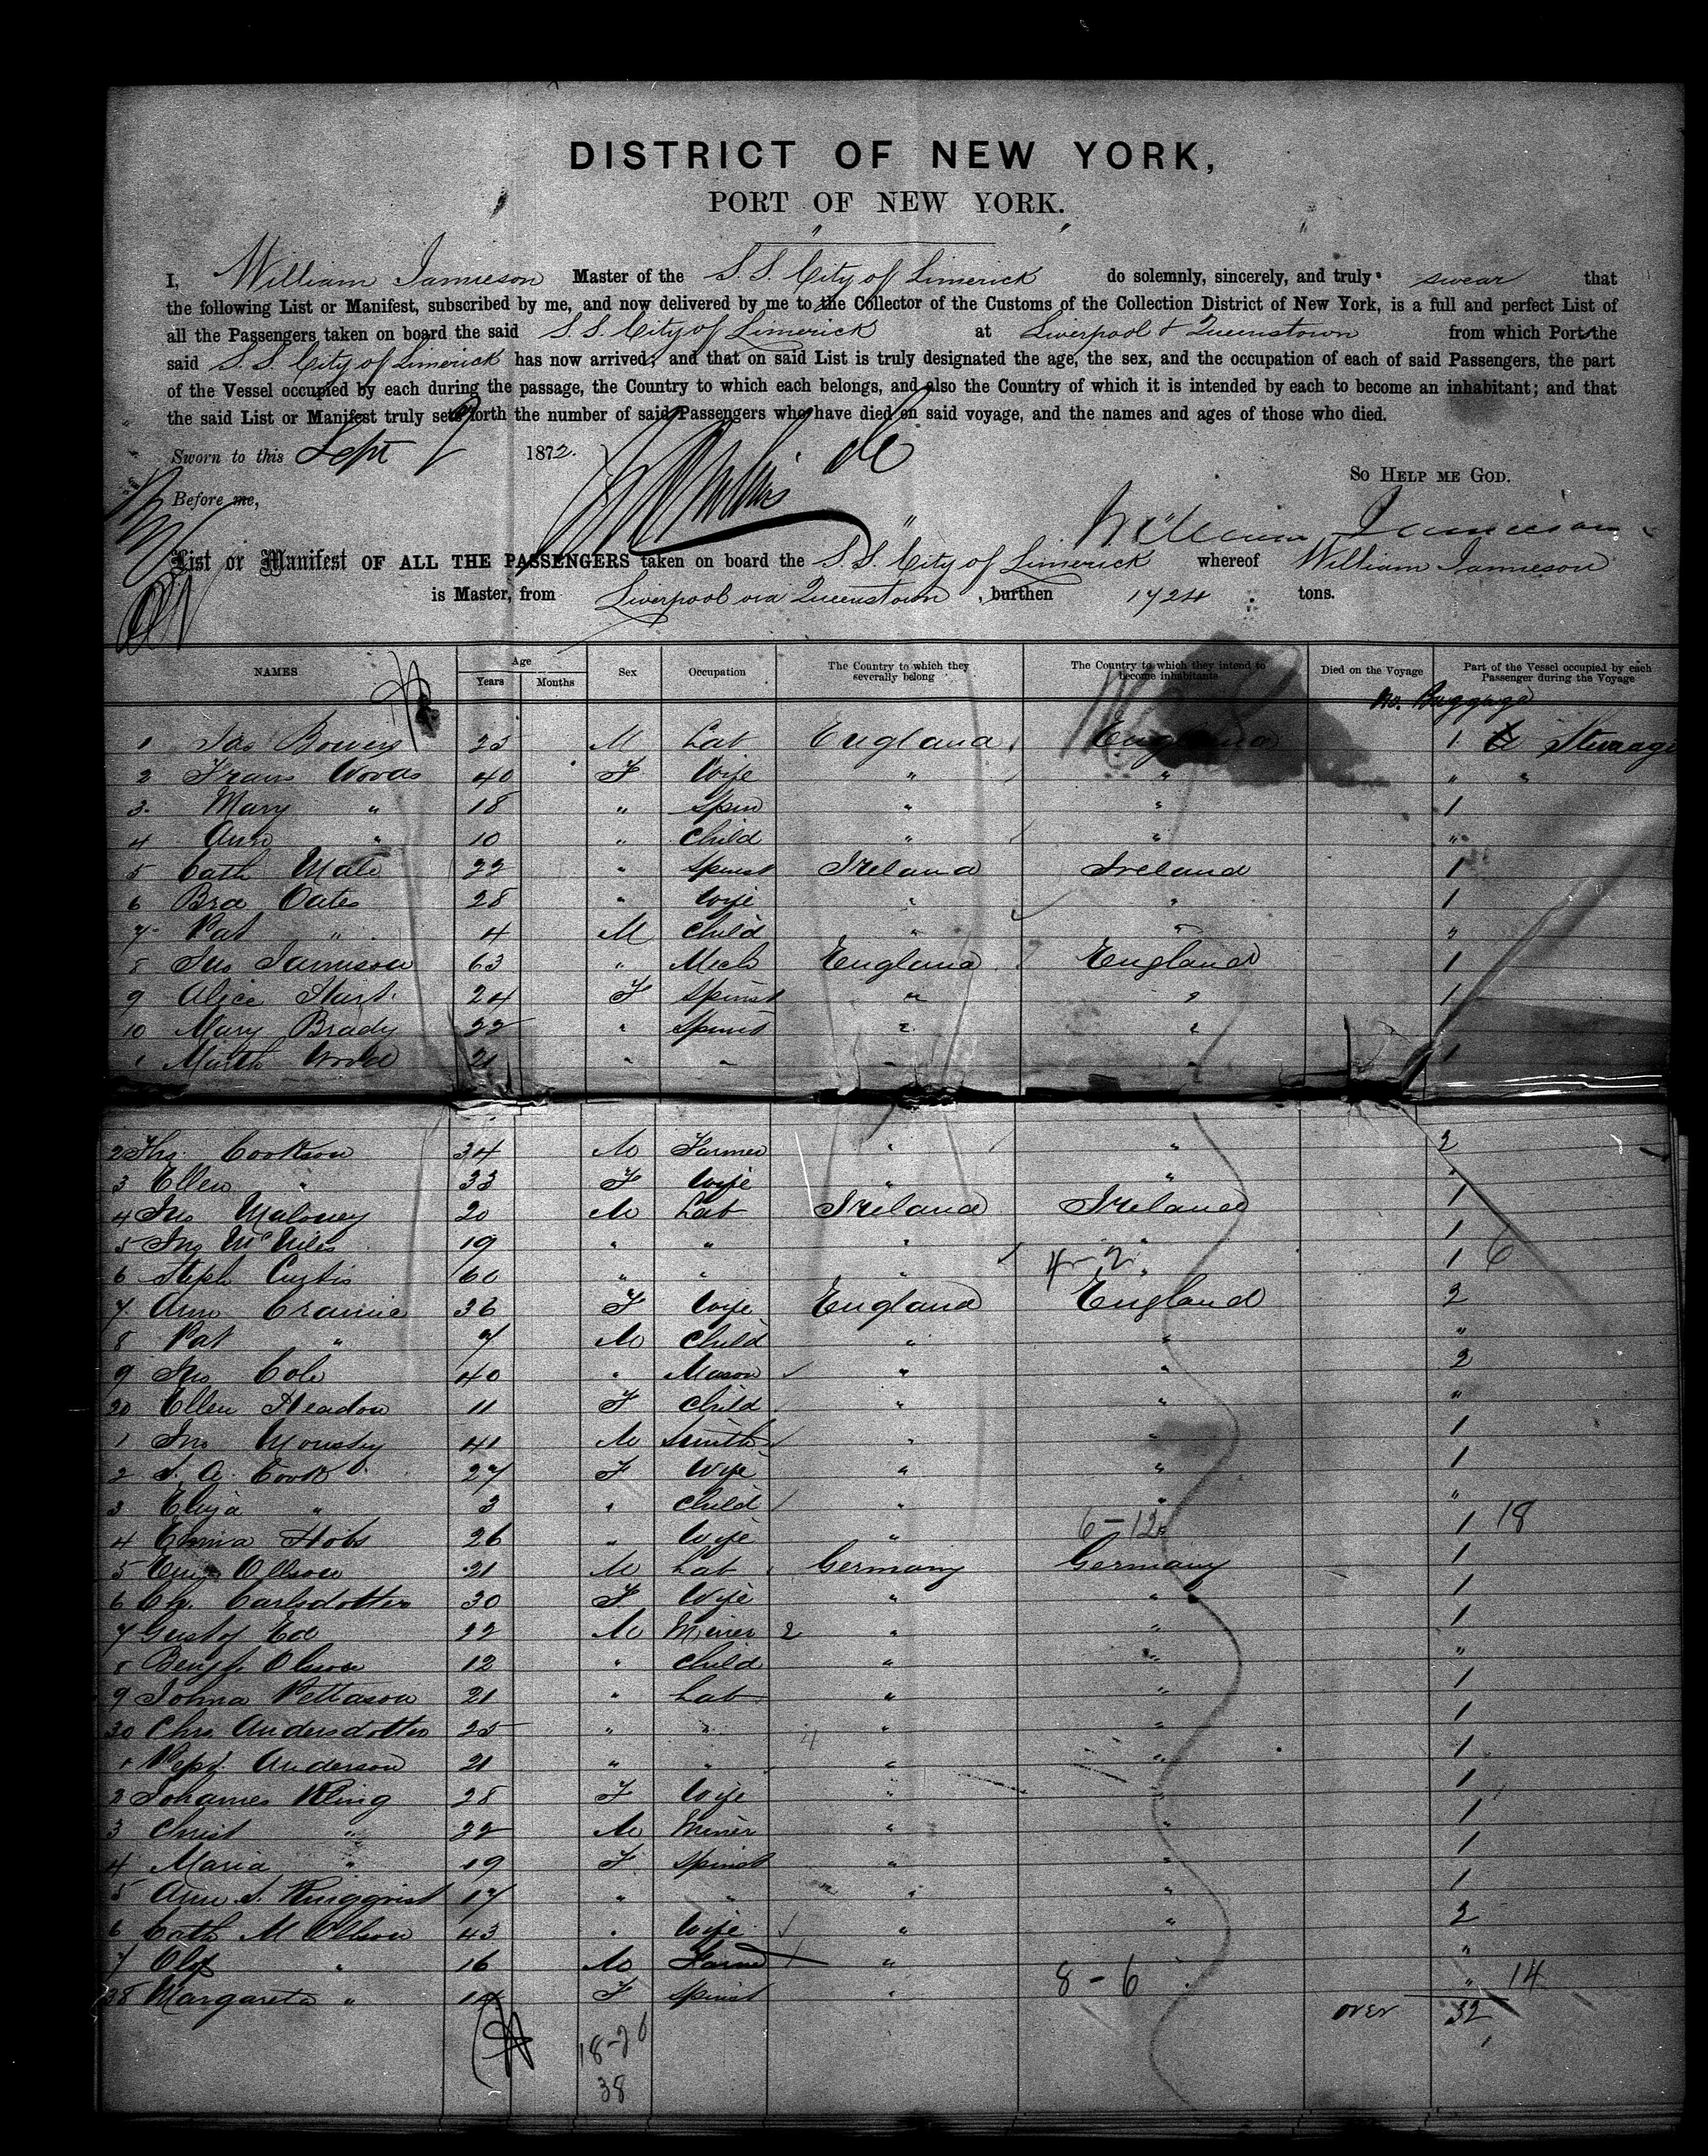 DISTRICT OF NEW YORK,
PORT OF NEW YORK.
I, William Jamieson Master of the S.S. City of Limerick do solemnly, sincerely, and truly swear that
the following List or Manifest, subscribed by me, and now delivered by me to the Collector of the Customs of the Collection District of New York, is a full and perfect List of
all the Passengers taken on board the said S.S. City of Limerick at Liverpool & Queenstown from which Port the
said S.S. City of Limerick has now arrived; and that on said List is truly designated the age, the sex, and the occupation of each of said Passengers, the part
of the Vessel occupied by each during the passage, the Country to which each belongs, and also the Country of which it is intended by each to become an inhabitant; and that
the said List or Manifest truly sets forth the number of said Passengers who have died on said voyage, and the names and ages of those who died.
Sworn to this Sept 1872.
So Help me God.
Before me,
William Jamieson
List or Manifest OF ALL THE PASSENGERS taken on board the S.S. City of Limerick whereof William Jamieson
is Master, from Liverpool via Queenstown, burthen 1724 tons.
NAMES Age Years Months Sex Occupation The Country to which they severally belong The Country to which they intend to become inhabitants Died on the Voyage Part of the Vessel occupied by each Passenger during the Voyage
No. Baggage
1 Jas Bowers 23 M Lab England England 1 Steerage
2 Frans Woods 40 F Wife " " " "
3 Mary " 18 " Spin " " 1
4 Ann " 10 " Child " " "
5 Cath Male 22 " Spinst Ireland Ireland 1
6 Brd Oates 28 " Wife " " 1
7 Pat " 4 M Child " " "
8 Jno Jamieson 63 " Mech England England 1
9 Alice Hurst 24 F Spinst " " 1
10 Mary Brady 22 " Spinst " " 1
1 21 " " " " 1
2 Thos. Cookson 34 M Farmer " " 2
3 Ellen " 33 F Wife " " "
4 Jno Maloney 20 M Lab Ireland Ireland 1
5 Jno McNiles 19 " " " " 1
6 Steph Curtis 60 " " " 4-2 " 1 6
7 Ann Crainie 36 F Wife England England 2
8 Pat " 7 M Child " " "
9 Jno Cole 40 " Mason " " 2
20 Ellen Headon 11 F Child " " "
1 Jno Mousley 41 M Smith " " 1
2 S. A. Cook 27 F Wife " " 1
3 Eliza " 3 " Child " " "
4 Emma Hobs 26 " Wife " 6-12 1 18
5 Ollson 21 M Lab Germany Germany 1
6 Ch. Carlsdotter 30 F Wife " " 1
7 Gustof Ed 22 M Miner 2 " " 1
8 Bengt. Olsson 12 " Child " " "
9 Johna Pettason 21 " Lab " " 1
30 Chrs. Andersdotter 25 " " 4 " " 1
1 Anderson 21 " " " " 1
2 Johannes Kling 28 F Wife " " 1
3 Christ " 22 M Miner " " 1
4 Maria " 19 F Spinst " " 1
5 Ann S. Ringqvist 17 " " " " 1
6 Cath M Ollson 43 " Wife " " 2
7 Olof " 16 M Farmer " " "
38 Margareta " 14 F Spinst " 8-6 " " 14
over 32
18-20
38